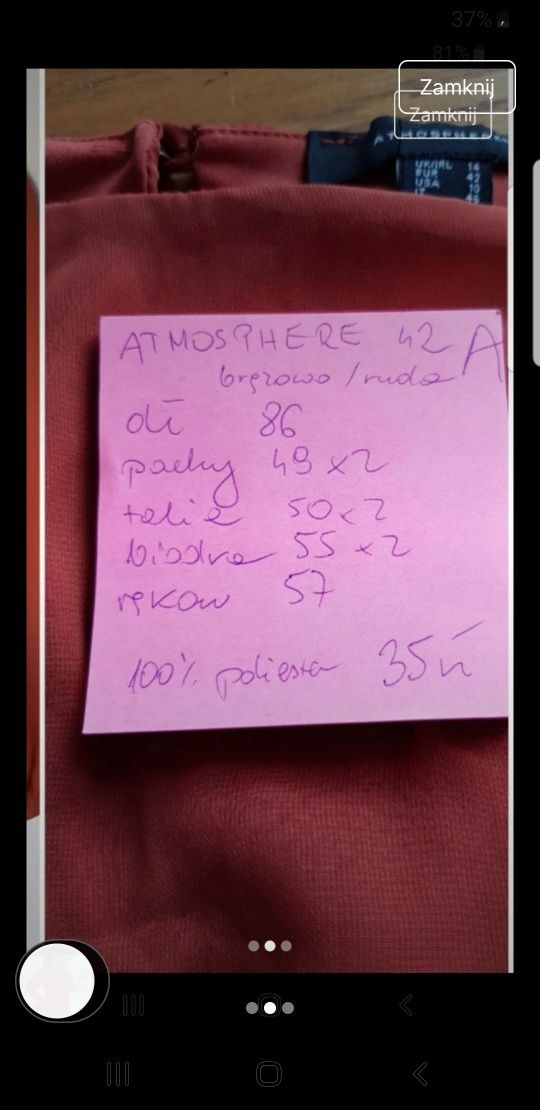 37%
81%
Zamknij
Zamknij
ATMOSPHERE
UK/IRL 14
EUR 42
USA 10
IT 46
ATMOSPHERE 42 A
brązowo/ruda
dł 86
pachy 49 x 2
talia 50 x 2
biodra 55 x 2
rękaw 57
100% poliester 35 zł